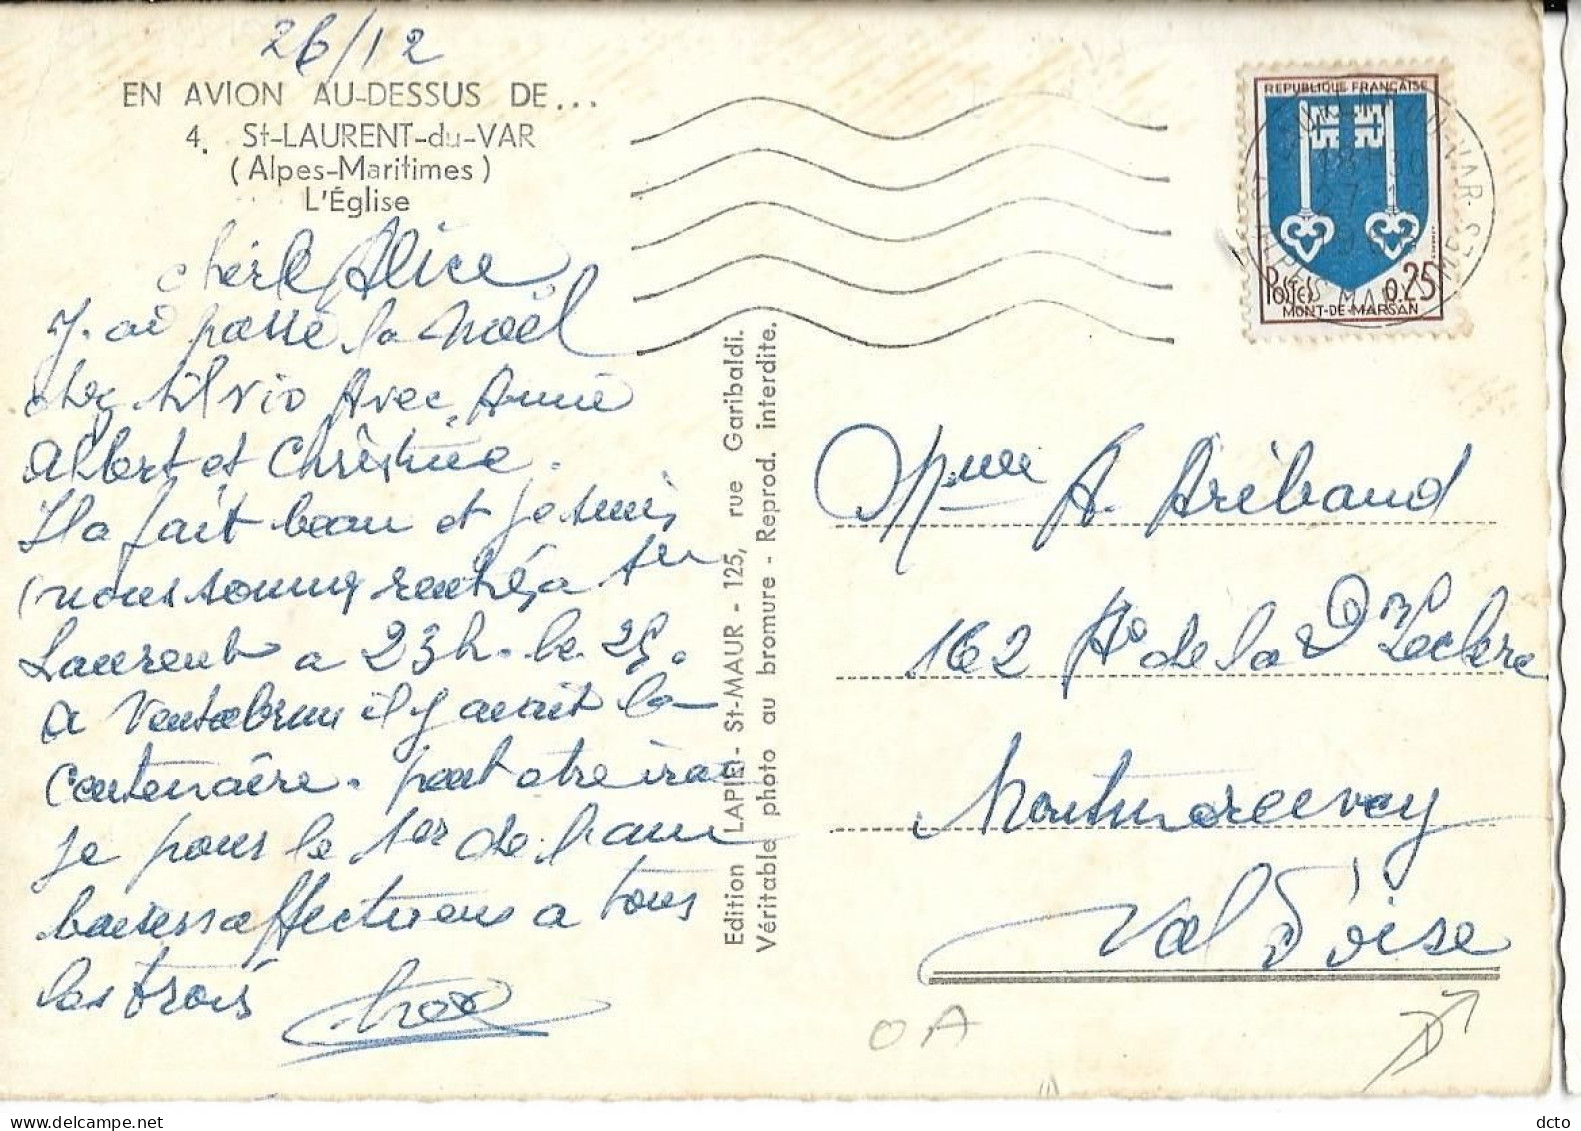 26/12
EN AVION AU-DESSUS DE...
4. St-LAURENT-du-VAR
(Alpes-Maritimes)
L'Église
chère Alice
J. ai passé la Noël
chez Silvio Avec Annie
Albert et Christine.
Il a fait beau et je suis
(nous sommes rentrés a St
Laurent a 23h. le 25.
a Ventabrun il y avait la
Centenaire. peut etre irai
je pour le 1er de l'an
baisers affectueux a tous
les trois
Edition LAPIE - St-MAUR - 125, rue Garibaldi.
Véritable photo au bromure - Reprod. interdite.
REPUBLIQUE FRANÇAISE
POSTES 0.25
MONT-DE-MARSAN
Mme A. Aribaud
162 de la Don Leclerc
Montmorency
Val d'Oise
OA
dcto